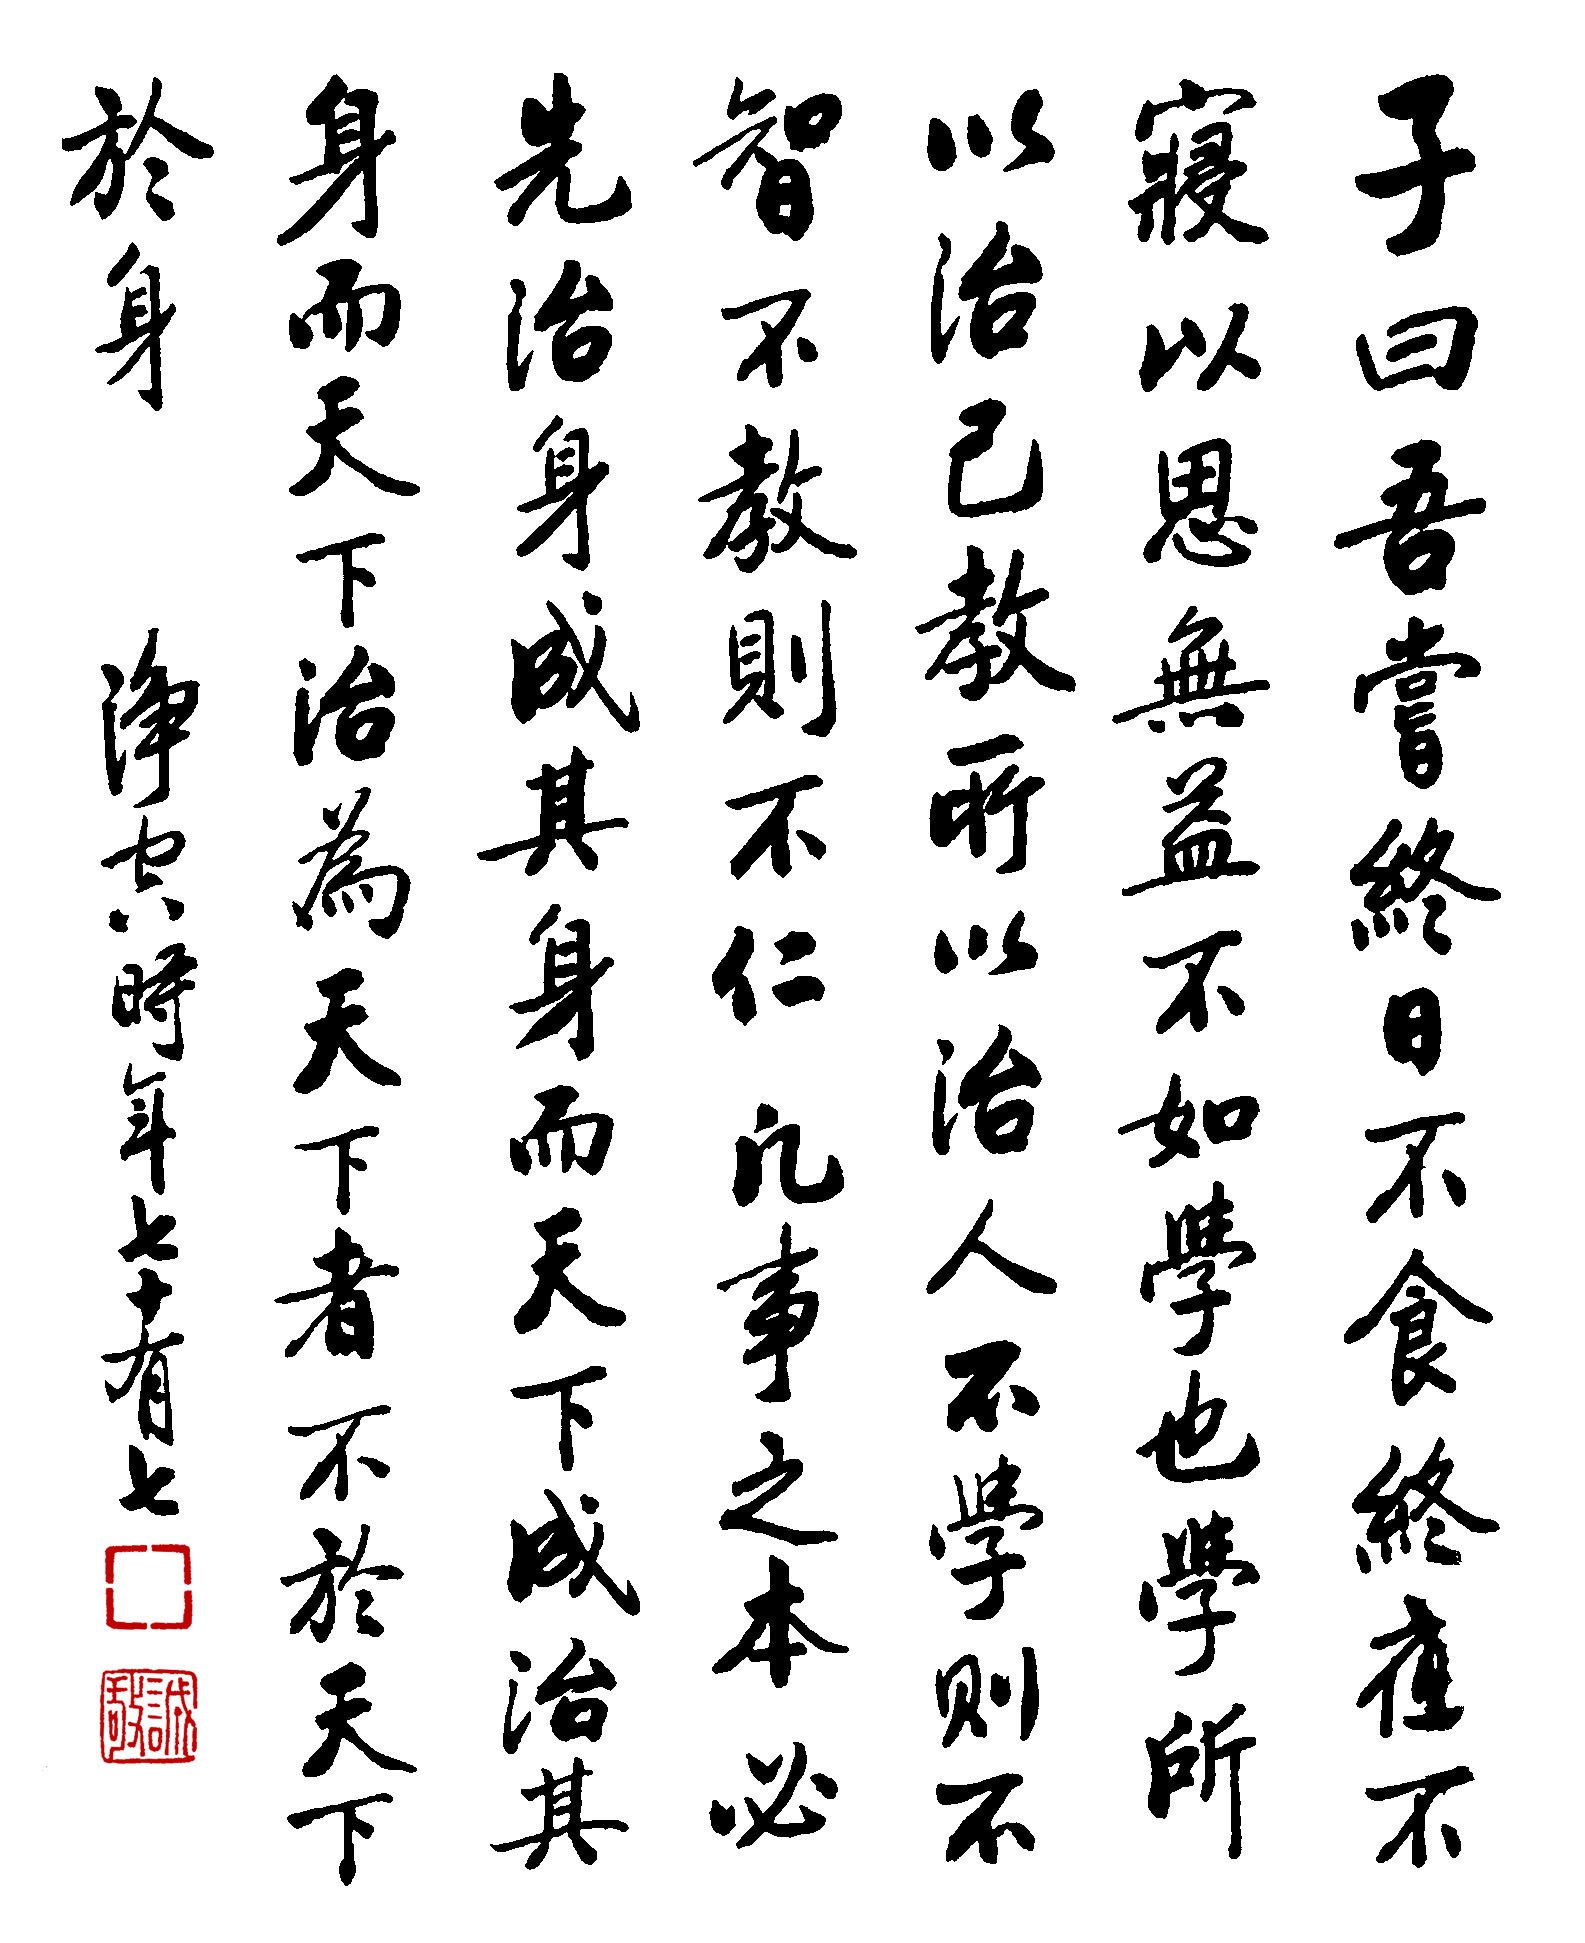 子曰吾嘗終日不食終夜不
寢以思無益不如學也學所
以治己教所以治人不學則不
智不教則不仁凡事之本必
先治身成其身而天下成治其
身而天下治為天下者不於天下
於身
淨空時年七十有七
誠敬